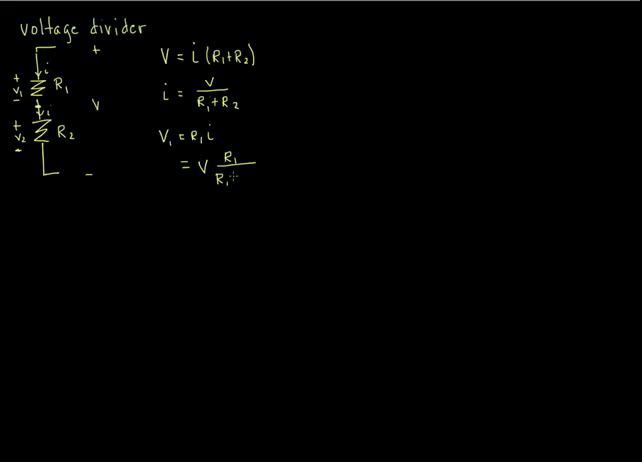 voltage divider
+
i
+
V₁
-
R₁
V
i
+
V₂
-
R₂
-
V = i (R₁+R₂)
i = V / R₁+R₂
V₁ = R₁ i
= V R₁ / R₁+